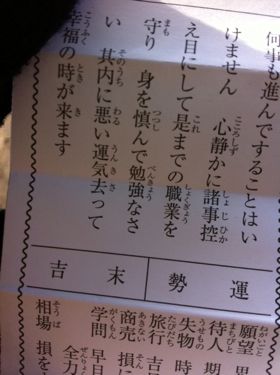 何事も進んですることはい
けません　心静かに諸事控
え目にして是までの職業を
守り　身を慎んで勉強なさ
い　其内に悪い運気去って
幸福の時が来ます
運勢
末吉
願望
待人
失物　時
旅行　吉
商売　損
学問　早目
全力
相場　損を